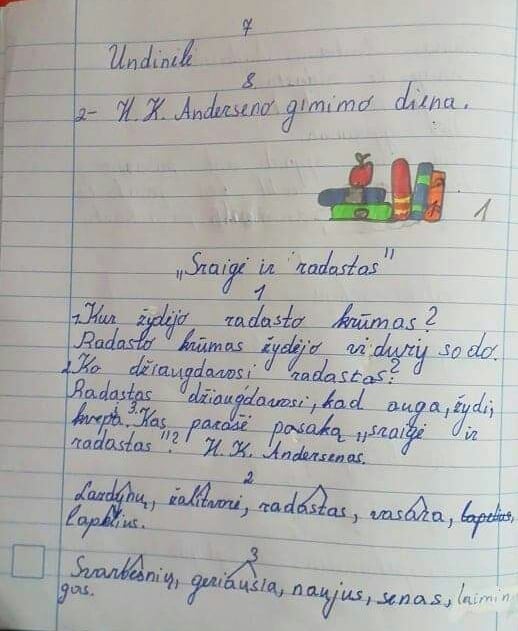 7
Undinėlė
8.
2- H. K. Anderseno gimimo diena.
1
„Sraigė ir radastas"
1
1. Kur žydėjo radasto krūmas?
Radasto krūmas žydėjo vidury sodo.
2. Ko džiaugdavosi radastas?
Radastas džiaugdavosi, kad auga, žydi,
kvepia. 3. Kas parašė pasaką „sraigė ir
radastas"? H. K. Andersenas.
2
Lazdynų, žalitvorė, radastas, vasara, lapelius,
lapelius.
3
Svarbesnių, geriausia, naujus, senas, laimin
gas.